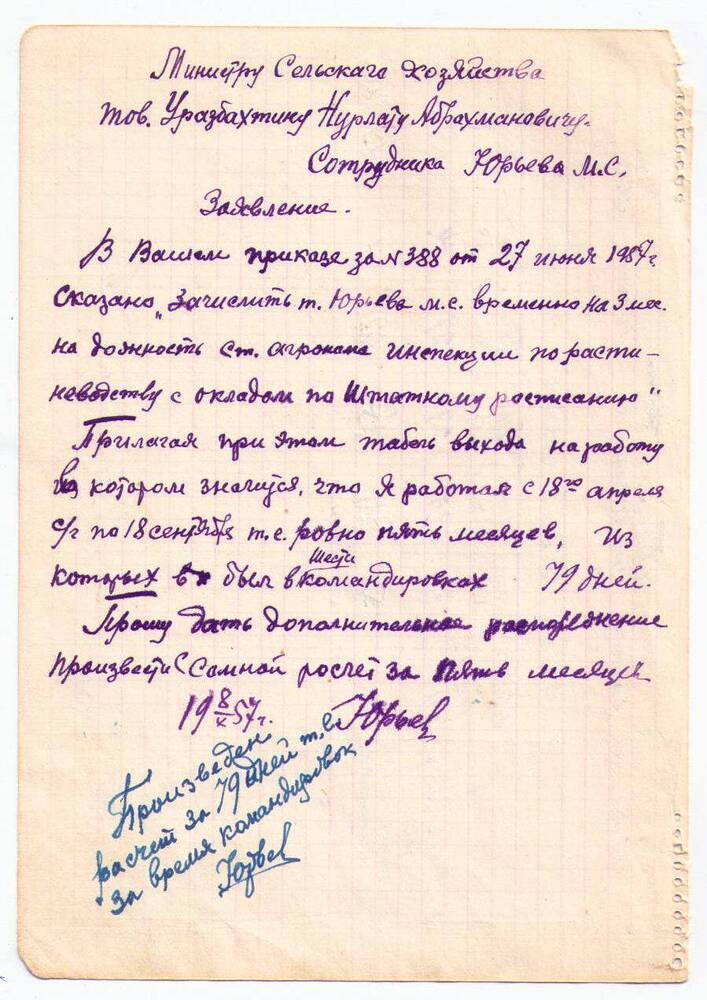 Министру Сельскаго Хозяйства
тов. Уразбахтину Нурлату Абрахмановичу.
Сотрудника Юрьева М.С.
Заявление.
В Вашем приказе за № 388 от 27 июня 1957 г.
Сказано „Зачислить т. Юрьева м.с. временно на 3 мес.
на должность ст. агронома инспекции по расти-
неводству с окладом по Штатному росписанию"
Прилагая при этом табель выхода на работу
в котором значится, что Я работал с 18го апреля
с/г по 18 сентября т.е. ровно пять месяцев, из
которых был в шести командировках 79 дней.
Прошу дать дополнительное распоряжнение
произвести Сомной росчет за пять месяцев
19 8/X 57 г. Юрьев
Произведен
расчет за 79 дней т.е.
за время командировок
Юрьев